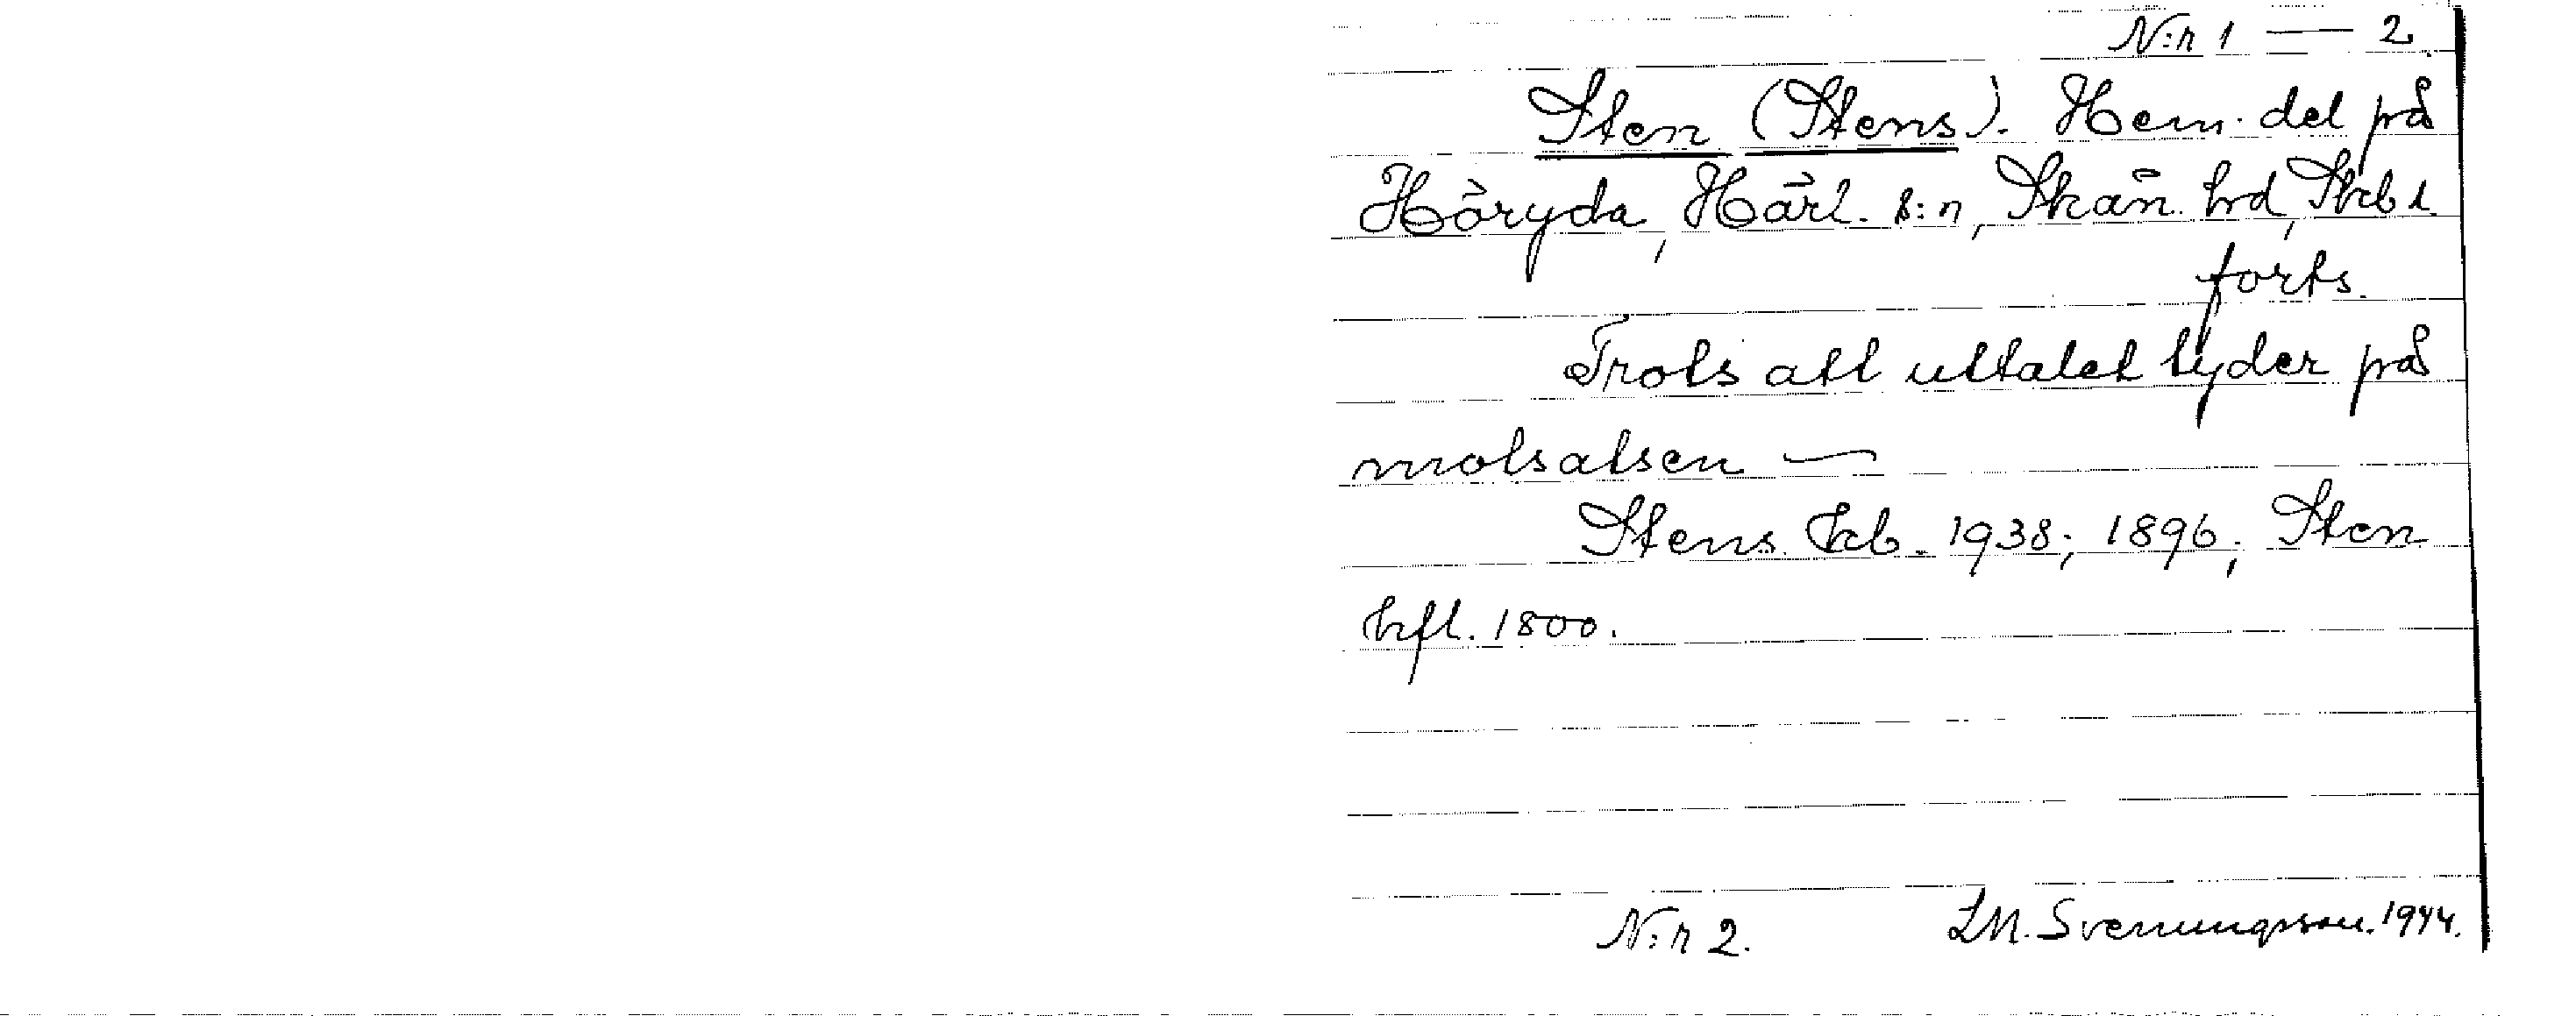 N:r 1 — 2.
Sten (Stens). Hem. del på
Höryda, Härl. s:n, Skån. hrd, Skbl.
forts.
Trots att uttalet tyder på
motsatsen —
Stens Kb. 1938; 1896; Sten
hfl. 1800.
N:r 2. I.M. Svenungsson. 1944.